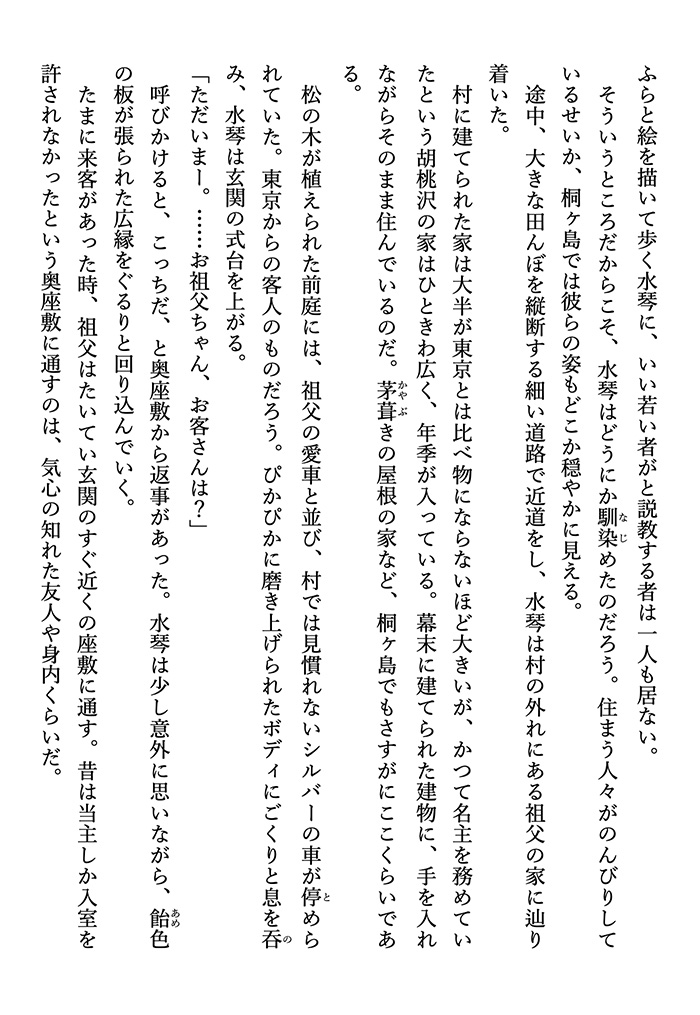 ふらと絵を描いて歩く水琴に、いい若い者がと説教する者は一人も居ない。
そういうところだからこそ、水琴はどうにか馴染めたのだろう。住まう人々がのんびりして
いるせいか、桐ヶ島では彼らの姿もどこか穏やかに見える。
途中、大きな田んぼを縦断する細い道路で近道をし、水琴は村の外れにある祖父の家に辿り
着いた。
村に建てられた家は大半が東京とは比べ物にならないほど大きいが、かつて名主を務めてい
たという胡桃沢の家はひときわ広く、年季が入っている。幕末に建てられた建物に、手を入れ
ながらそのまま住んでいるのだ。茅葺きの屋根の家など、桐ヶ島でもさすがにここくらいであ
る。
松の木が植えられた前庭には、祖父の愛車と並び、村では見慣れないシルバーの車が停めら
れていた。東京からの客人のものだろう。ぴかぴかに磨き上げられたボディにごくりと息を呑
み、水琴は玄関の式台を上がる。
「ただいまー。……お祖父ちゃん、お客さんは？」
呼びかけると、こっちだ、と奥座敷から返事があった。水琴は少し意外に思いながら、飴色
の板が張られた広縁をぐるりと回り込んでいく。
たまに来客があった時、祖父はたいてい玄関のすぐ近くの座敷に通す。昔は当主しか入室を
許されなかったという奥座敷に通すのは、気心の知れた友人や身内くらいだ。